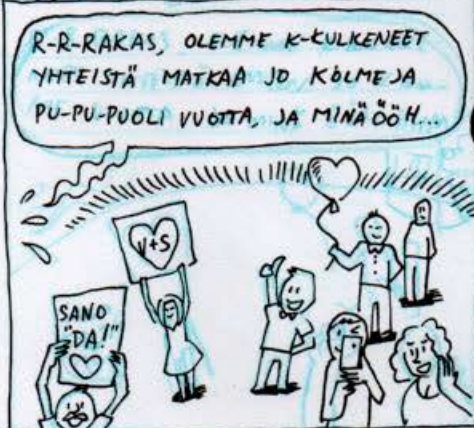 R-R-RAKAS, OLEMME K-KULKENEET
YHTEISTÄ MATKAA JO KOLME JA
PU-PU-PUOLI VUOTTA, JA MINÄ ÖÖH...
V+S
SANO
"DA!"